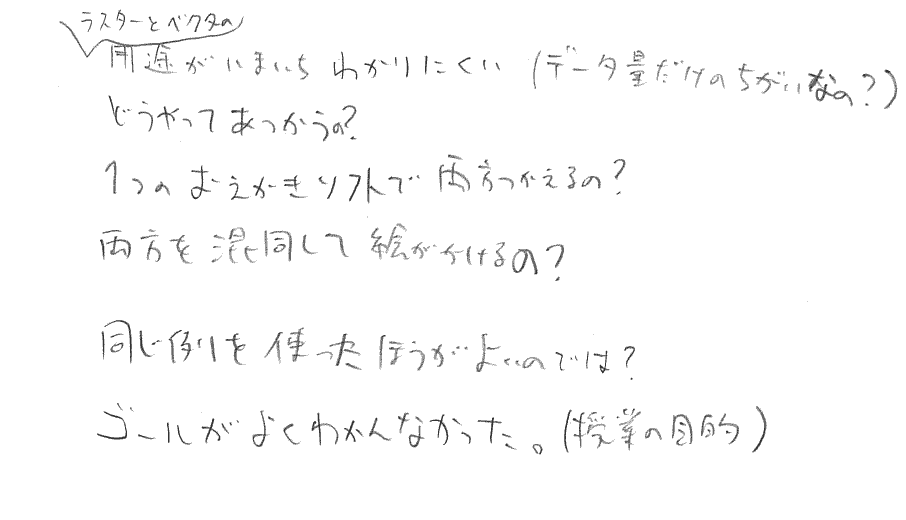 ラスターとベクタの
用途がいまいちわかりにくい (データ量だけのちがいなの?)
どうやってあつかうの?
1つのおえかきソフトで両方つかえるの?
両方を混同して絵がかけるの?
同じ例を使ったほうがよいのでは?
ゴールがよくわかんなかった。(授業の目的)